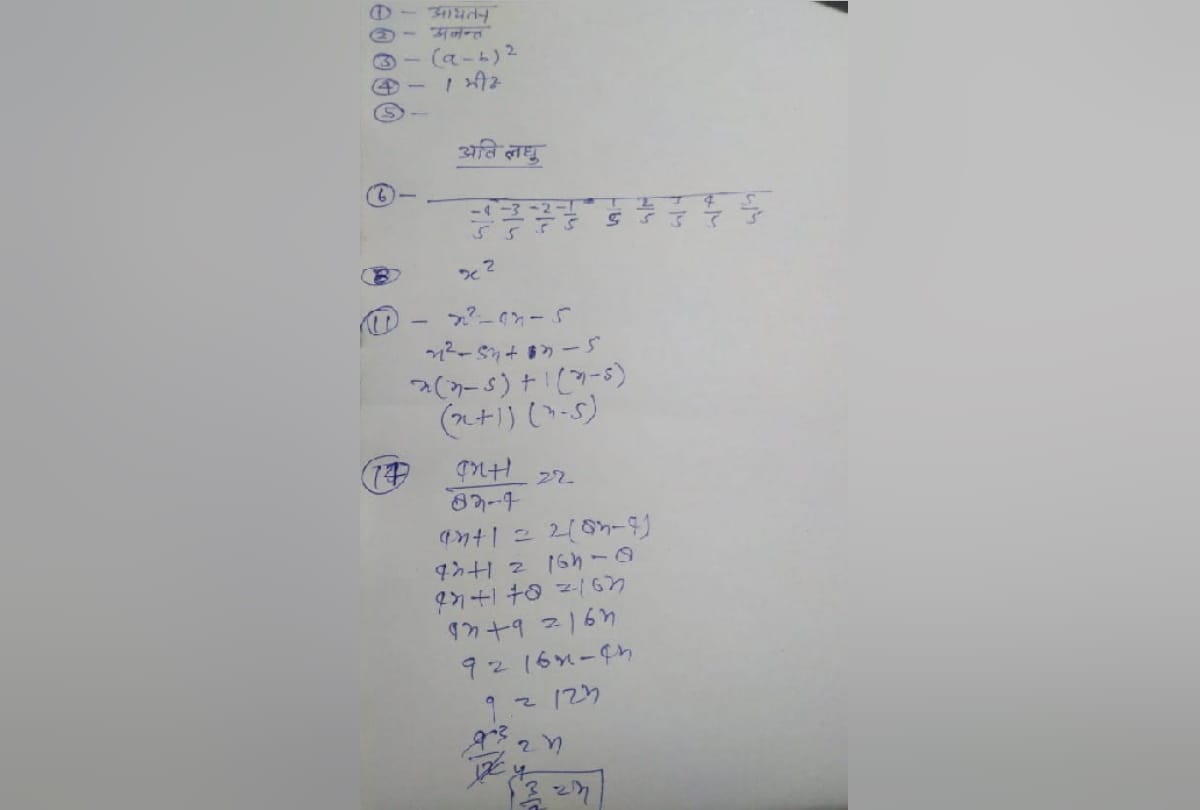 ① - आयतन
② - अनन्त
③ - (a-b)²
④ - 1 मी०
⑤ -
अति लघु
⑥ - -4/5 -3/5 -2/5 -1/5 1/5 2/5 3/5 4/5 5/5
⑧ x²
⑪ - x²-4x-5
x²-5x+1x-5
x(x-5)+1(x-5)
(x+1)(x-5)
4x+1/8x-4 = 2
4x+1 = 2(8x-4)
4x+1 = 16x-8
4x+1+8 = 16x
4x+9 = 16x
9 = 16x-4x
9 = 12x
9 3/12 4 = x
3/4 = x